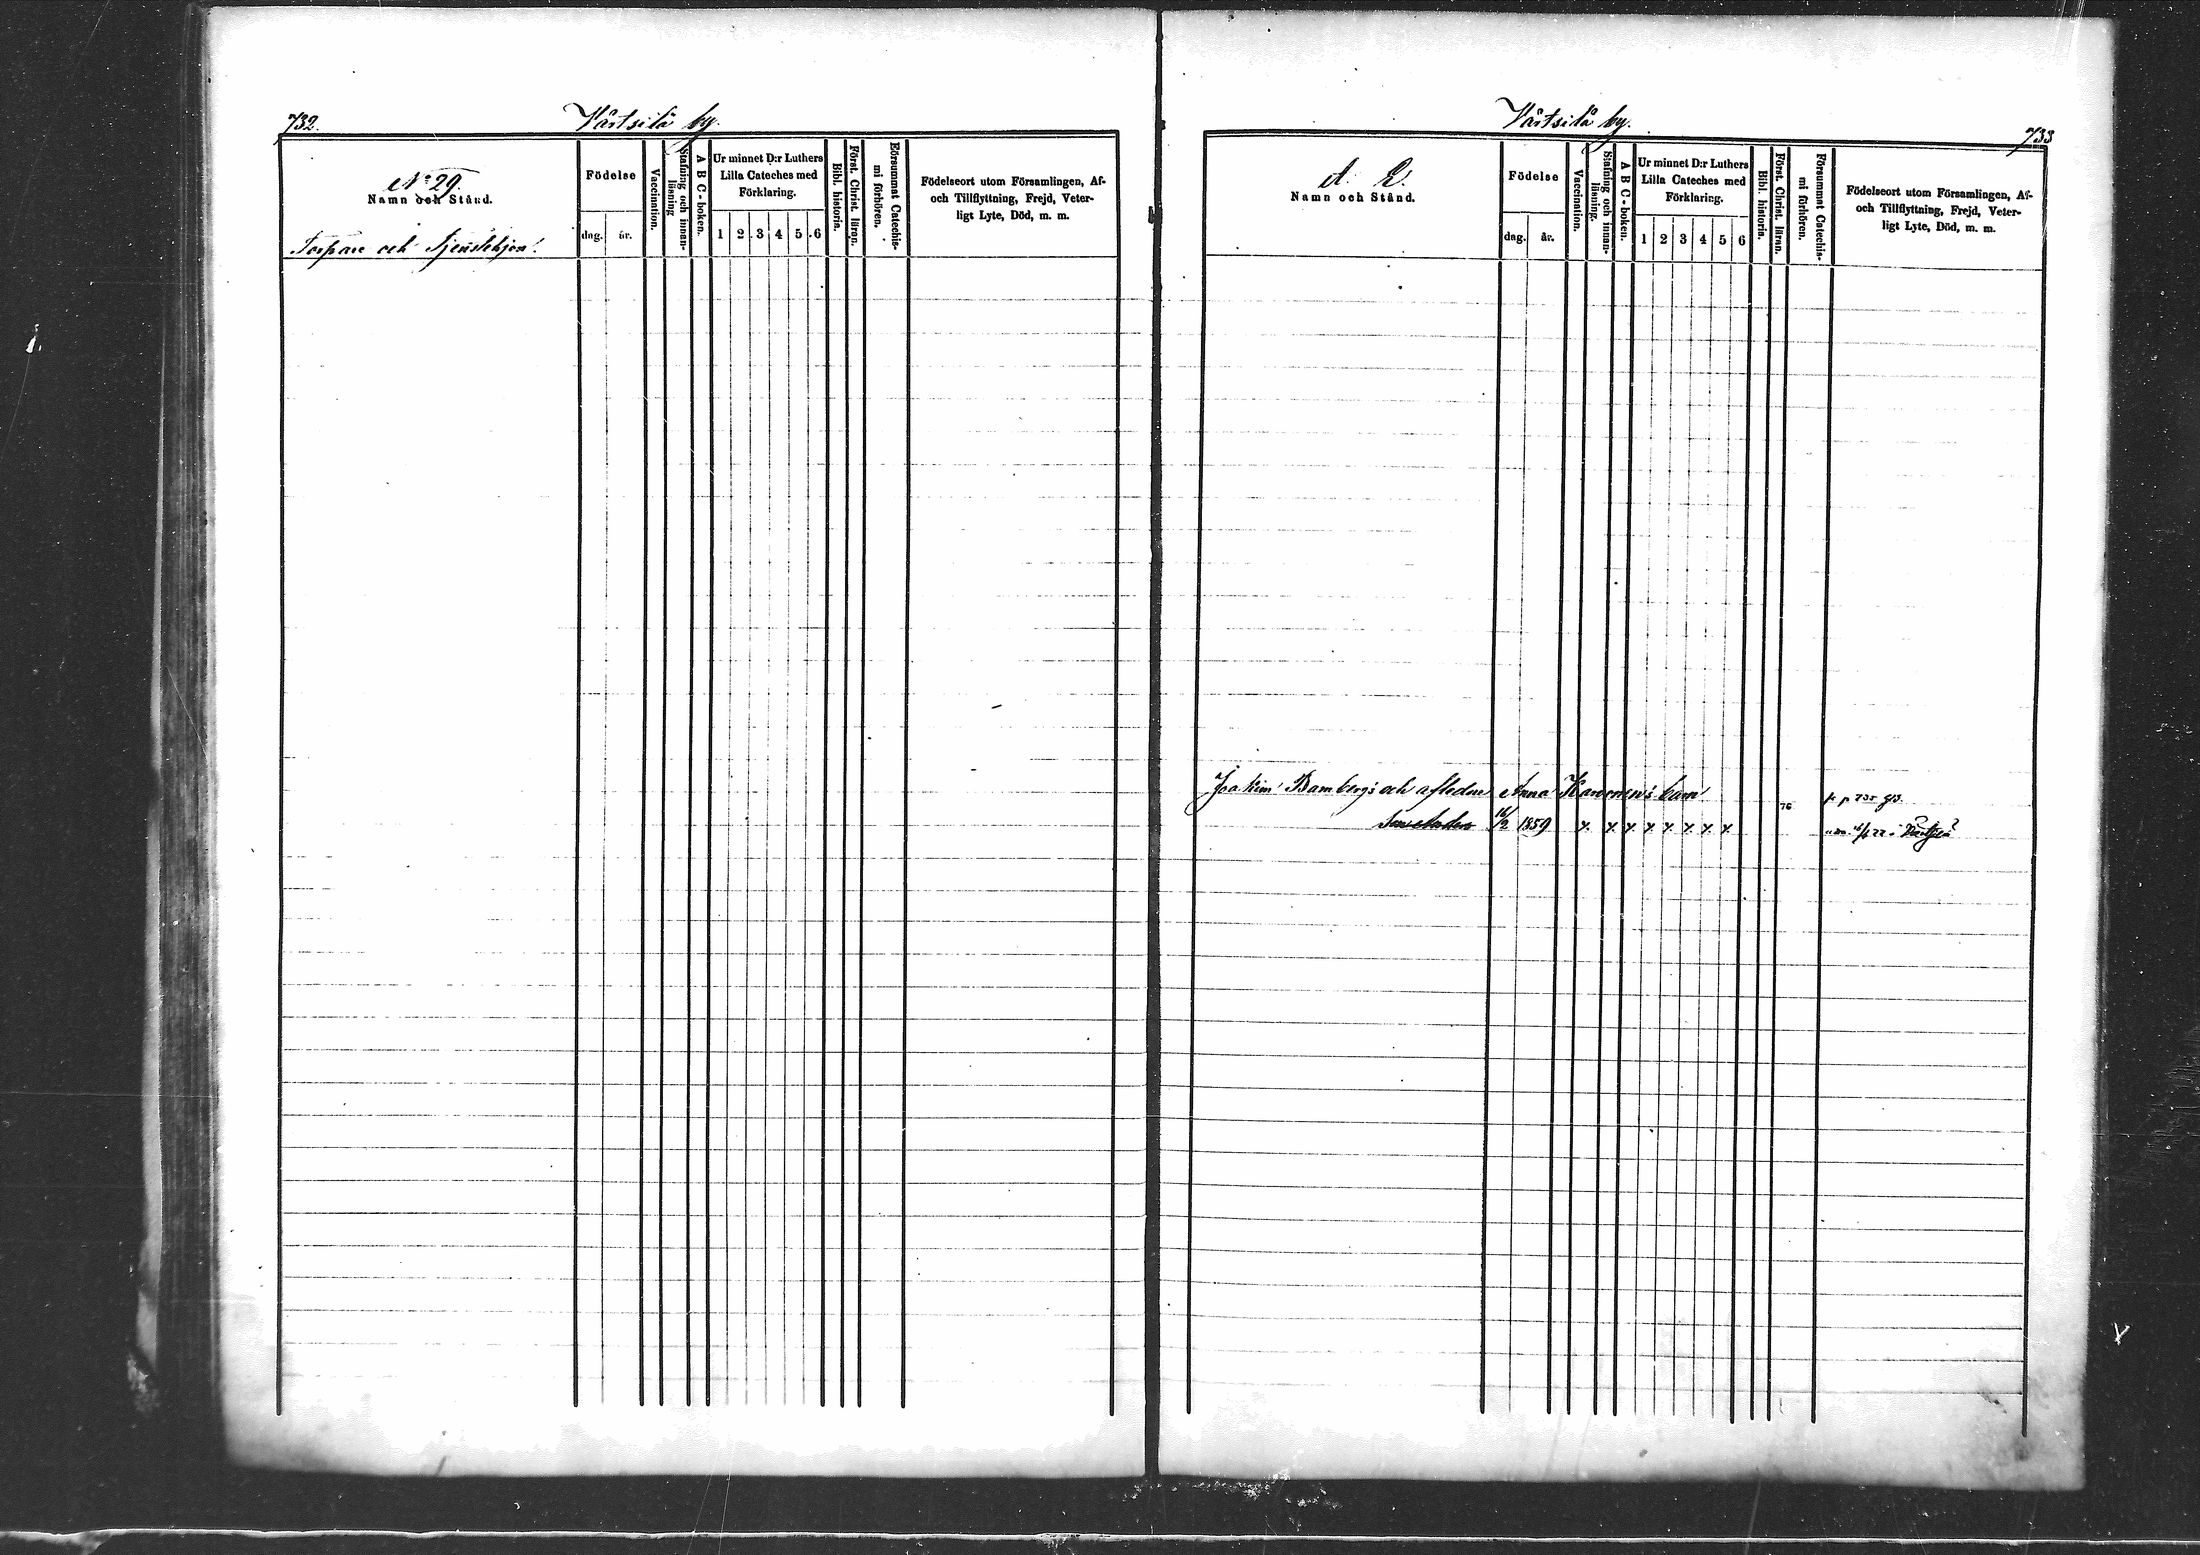 732.
Värtsilä by.
No 29.
Namn och Stånd.
Torpare och Tjenstehjon.
Födelse
dag.
år.
Vaccination.
Stafning och innan-
läsning
A B C - boken.
Ur minnet D:r Luthers
Lilla Cateches med
Förklaring.
1 2 3 4 5 6
Bibl. historia.
Först. Christ. läran.
Försummat Catechis-
mi förhören.
Födelseort utom Församlingen, Af-
och Tillflyttning, Frejd, Veter-
ligt Lyte, Död, m. m.
Värtsilä by.
733
Namn och Stånd.
Födelse
dag.
år.
Vaccination.
Stafning och innan-
läsning.
A B C - boken.
Ur minnet D:r Luthers
Lilla Cateches med
Förklaring.
1 2 3 4 5 6
Bibl. historia.
Först. Christ. läran.
Försummat Catechis-
mi förhören.
Födelseort utom Församlingen, Af-
och Tillflyttning, Frejd, Veter-
ligt Lyte, Död, m. m.
Joakim Bambergs och afledne Anna Havonen's barn
76
1859